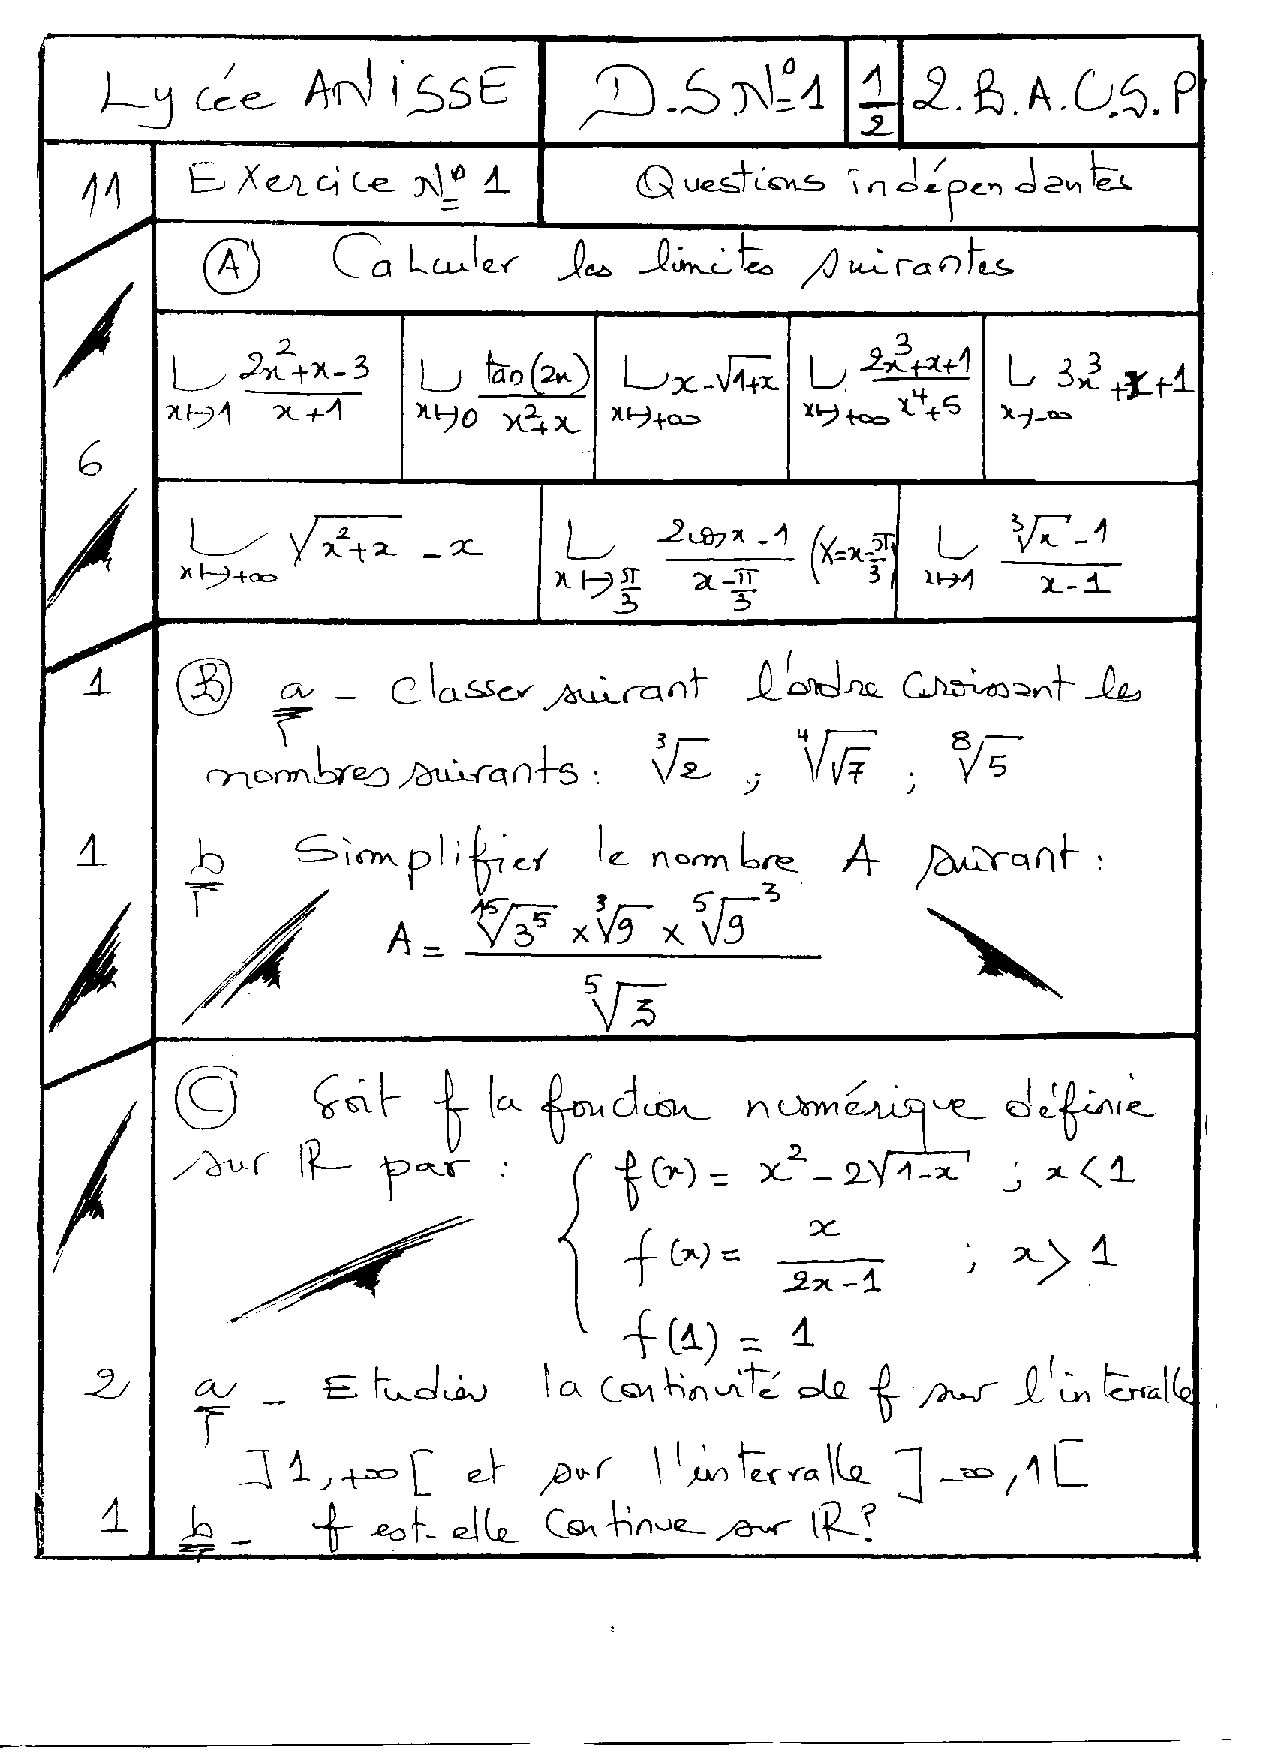 Lycée ANISSE D.S N°1 1/2 2.B.A.C.S.P
11 Exercice N° 1 Questions indépendantes
(A) Calculer les limites suivantes
L x↦1 (2x²+x-3)/(x+1) L x↦0 tan(2x)/(x²+x) L x↦+∞ x-√(1+x) L x↦+∞ (2x³+x+1)/(x⁴+5) L x→-∞ 3x³+x+1
6
L x↦+∞ √(x²+x) - x L x↦π/3 (2cosx-1)/(x-π/3) (X=x-π/3) L x↦1 (³√x-1)/(x-1)
1 (B) a - Classer suivant l'ordre croissant les
nombres suivants: ³√2 ; ⁴√√7 ; ⁸√5
1 b Simplifier le nombre A suivant :
A = (¹⁵√3⁵ × ³√9 × ⁵√9³)/⁵√3
(C) Soit f la fonction numérique définie
sur IR par : { f(x) = x² - 2√(1-x) ; x<1
f(x) = x/(2x-1) ; x>1
f(1) = 1
2 a - Etudier la continuité de f sur l'intervalle
]1,+∞[ et sur l'intervalle ]-∞,1[
1 b - f est-elle continue sur IR?